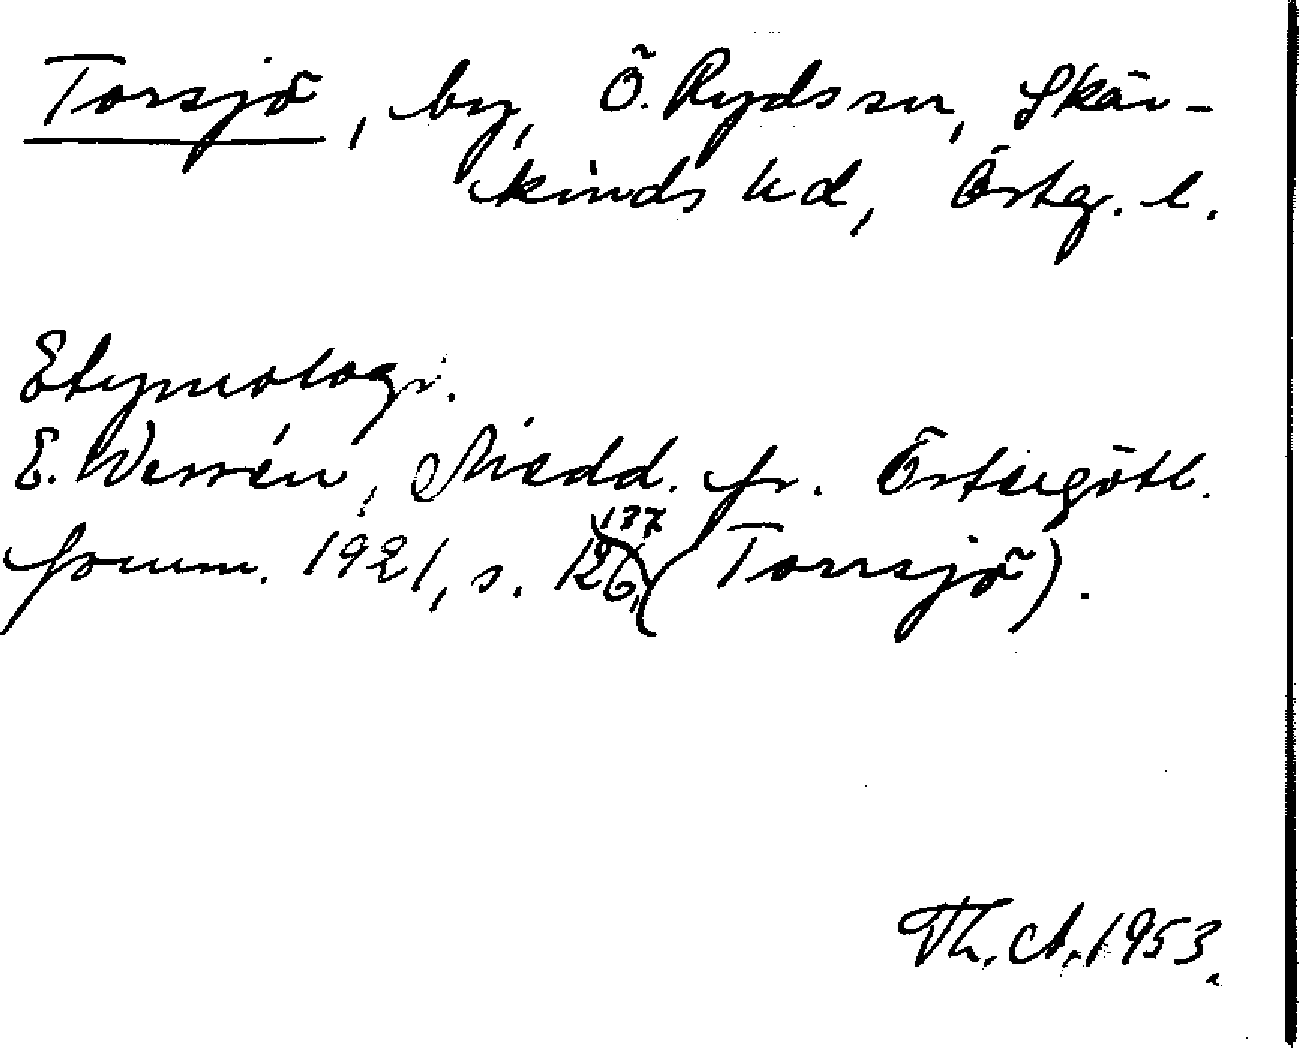 Torsjö, by, Ö. Ryds sn, Skär-
kinds hd, Östg. l.
Etymologi.
E. Wessén, Medd. fr. Östergötl.
fornm. 1921, s. 126, 137 (Torsjö).
Th. A. 1953.